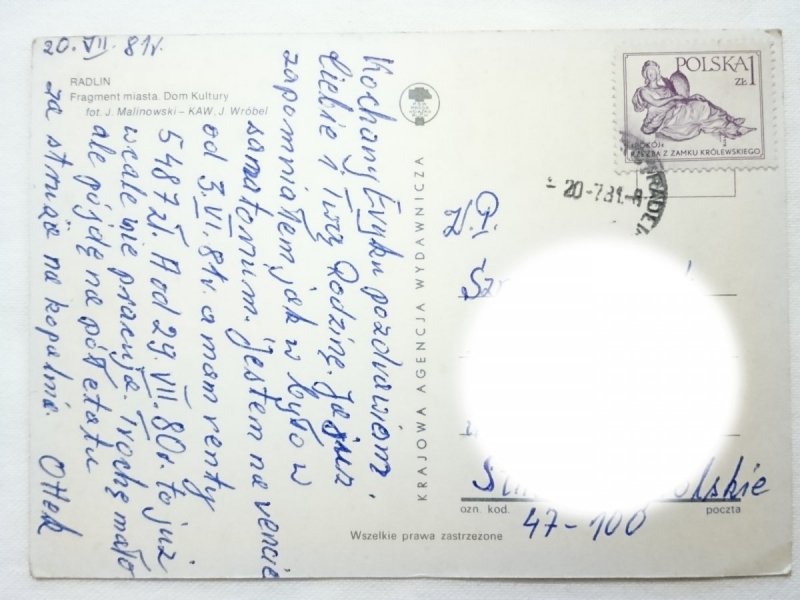 20. VII. 81r.
RADLIN
Fragment miasta. Dom Kultury
fot. J. Malinowski – KAW. J. Wróbel
Kochany Eryku pozdrawiam
Ciebie i Twą Rodzinę. Ja już
zapomniałem jak w było w
sanatorium. Jestem na rencie
od 3. VI. 81r. a mam renty
5487 zł. A od 29. VII. 80r. to już
wcale nie pracuję. Trochę mało
ale pójdę na pół etatu
za stróża na kopalnię. Otток
KRAJOWA AGENCJA WYDAWNICZA
POLSKA 1
ZŁ
»POKÓJ«
RZEŹBA Z ZAMKU KRÓLEWSKIEGO
20-7.81.-8
W.P.
ozn. kod.
poczta
47-100
Wszelkie prawa zastrzeżone